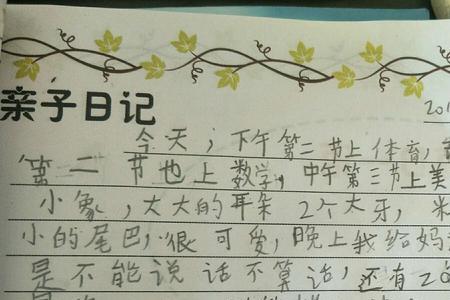 亲子日记
201
今天,下午第二节上体育,
第二节也上数学,中午第三节上美
小象,大大的耳朵2个大牙,米
小的尾巴,很可爱,晚上我给妈
是不能说话不算话,还有20